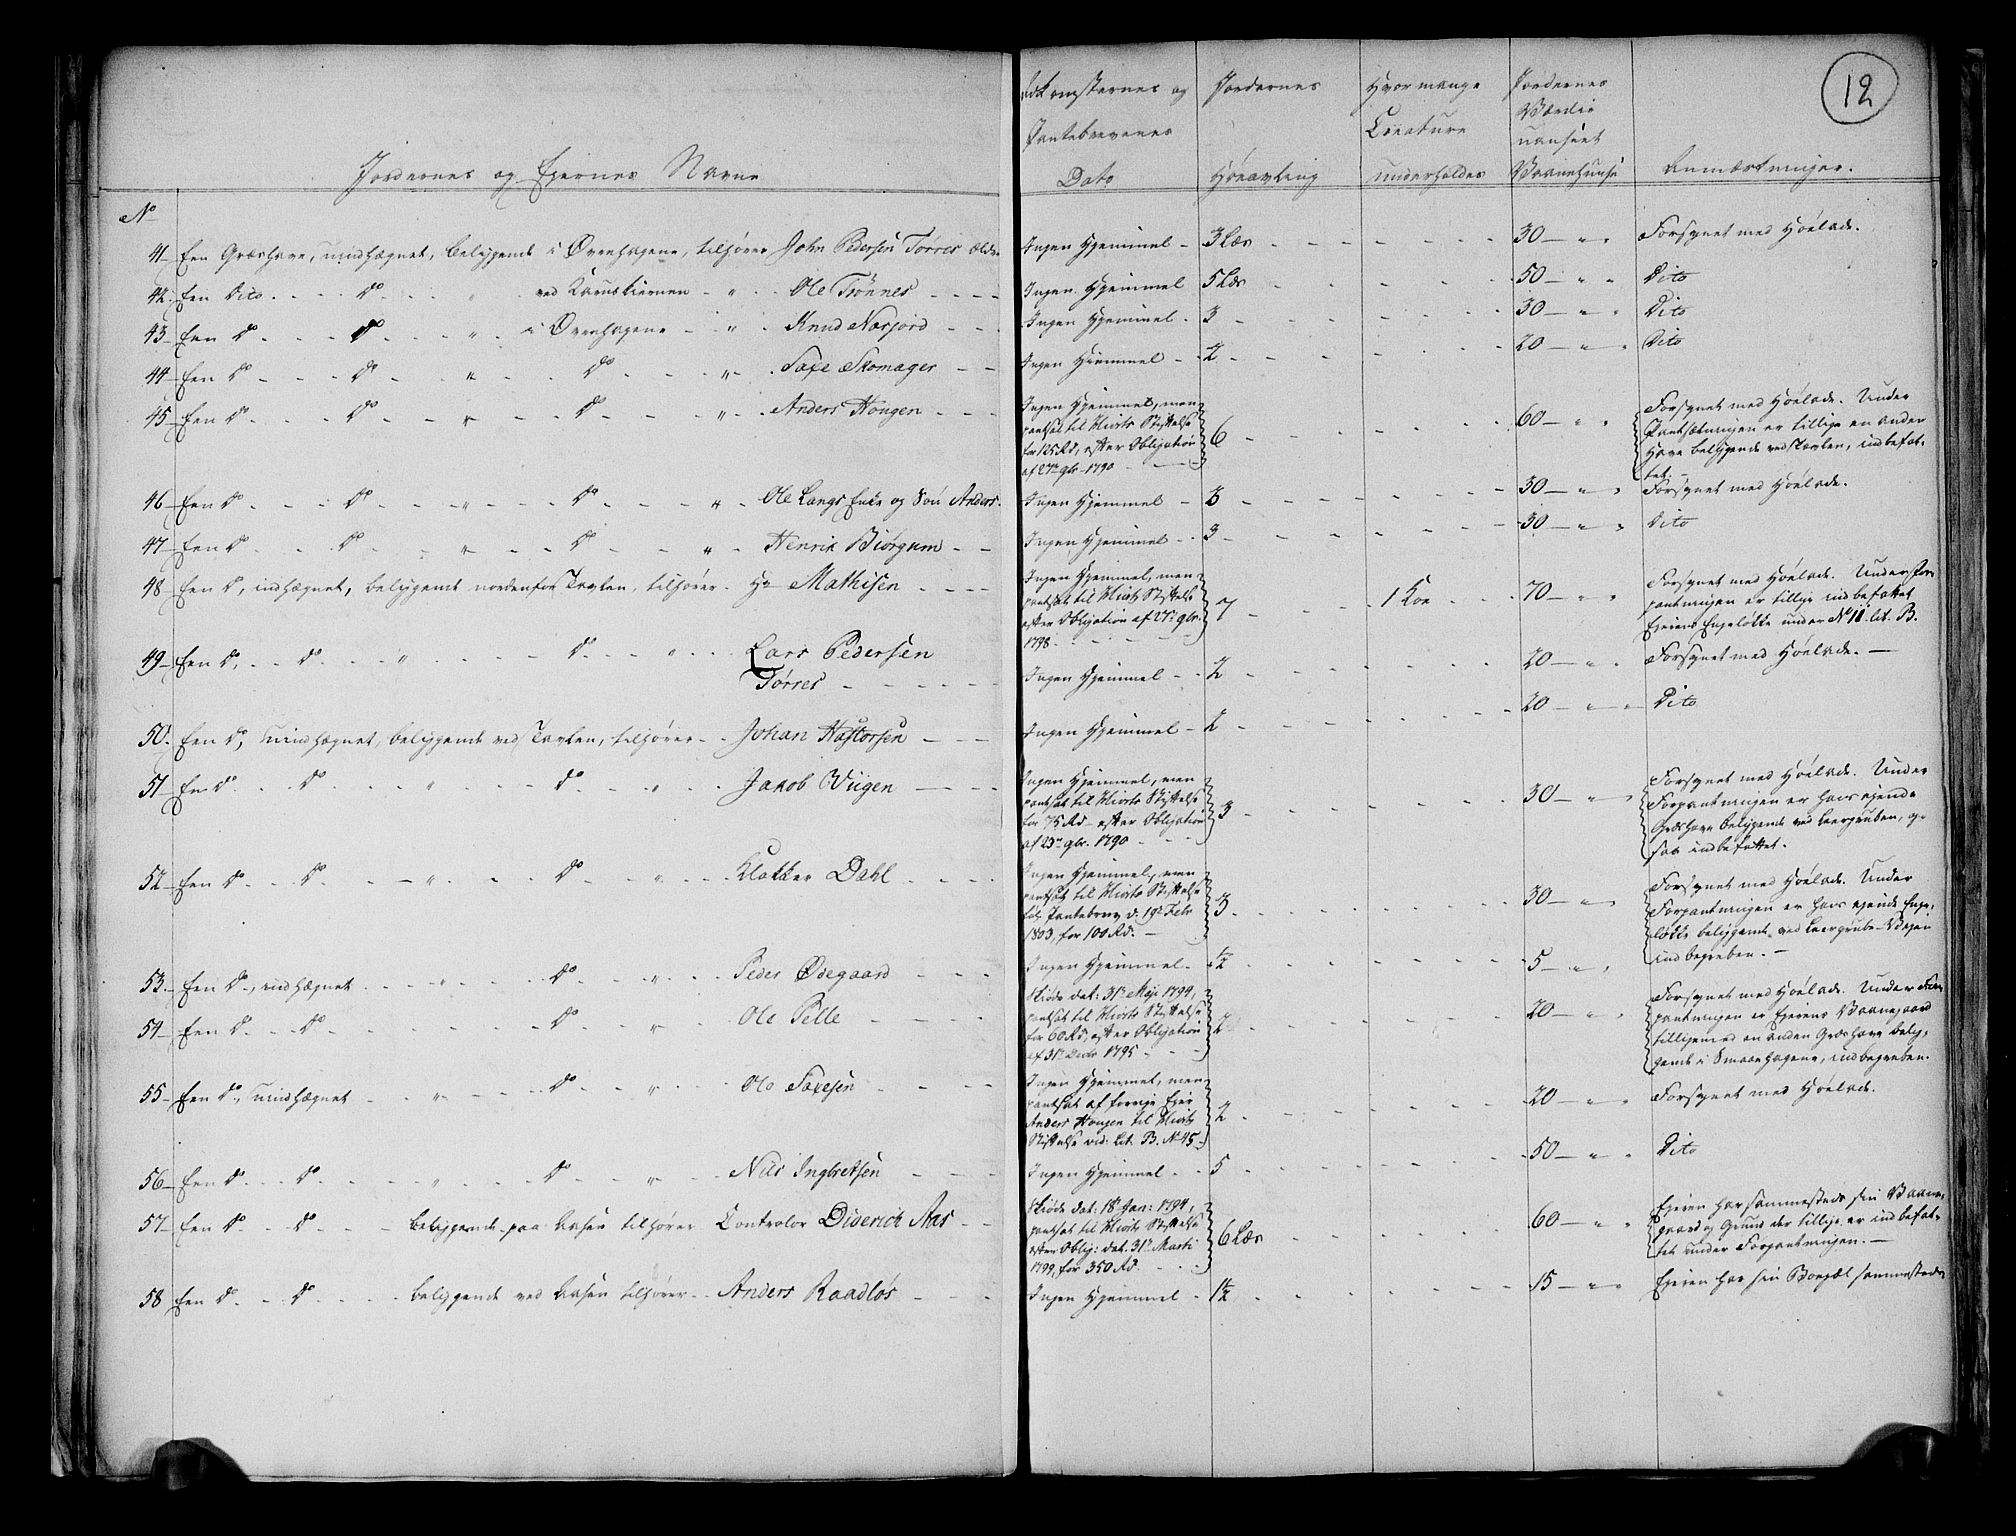 12
Adkomsternes og Jordernes Hvor mange Jordernes
Pantebrevenes Creature Værdie
uanseet
Jordernes og Ejernes Navne Dato Høeavling underholdes Vaanehuuse Anmærkninger.
No
41 Een Græshave, uindhægnet, beliggende i Øvrehagene, tilhører John Pedersen Tørres ælder Ingen Hjemmel - 3 Læs 30 Forsynet med Høelade.
42. Een Dito do ved Karusskiernen Ole Trønnes Ingen Hjemmel 5 Læs 50 Dito
43 Een do do i Øvrehagene Knud Narjord Ingen Hjemmel 3 30 Dito
44 Een do do do Saxe Skomager Ingen Hjemmel 2 20 Dito
45 Een do do do Anders Hougen Ingen Hjemmel, men
pantsat til Hiorts Stiftelse
for 125 Rd, efter Obligation
af 27de 9br 1790 6 60 Forsynet med Høelade. Under
Pantsætningen er tillige en anden
Have beliggende ved Tavlen, indbefat-
tet.
46 Een do do do Ole Langs Enke og Søn Anders Ingen Hjemmel 3 30 Forsynet med Høelade.
47 Een do do do Henrik Biørgum Ingen Hjemmel 3 30 Dito
48 Een do, indhægnet, beliggende nordenfor Tavlen, tilhører Hr Mathisen Ingen Hjemmel, men
pantsat til Hiorts Stiftelse
efter Obligation af 27de 9br.
1798 7 1 Koe 70 Forsynet med Høelade. Under For-
pantningen er tillige indbefattet
Ejerens Engeløkke under No 11 lit. B.
49 Een do, do do Lars Pedersen
Tørres Ingen Hjemmel 2 20 Forsynet med Høelade.
50. Een do, uindhægnet, beliggende ved Tavlen, tilhører Johan Hastorsen Ingen Hjemmel 2 20 Dito
51 Een do do do Jakob Wiigen Ingen Hjemmel, men
pantsat til Hiorts Stiftelse
for 75 Rd efter Obligation
af 23de 9br. 1790 3 30 Forsynet med Høelade. Under
Forpantningen er hans ejende
Græshave beliggende ved Leergruben, og-
saa indbefattet.
52 Een do do do Klokker Dahl Ingen Hjemmel, men
pantsat til Hiorts Stiftelse
Pantebrev d. 19de Febr
1803, for 100 Rd. 3 30 Forsynet med Høelade. Under
Forpantningen er hans ejende Enge-
løkke beliggende ved Leergrube-Vejen
indbegreben.
53. Een do, indhægnet do Peder Ødegaard Ingen Hjemmel 1/2 5
54 Een do do do Ole Pelle Skiøde dat: 31te Maji 1794,
pantsat til Hiorts Stiftelse
for 60 Rd, efter Obligation
af 31te Decbr 1795 2 20 Forsynet med Høelade. Under For-
pantningen er Ejerens Vaanegaard
tilligemed en anden Græshave belig-
gende i Smaaehagene, indbegreben.
55 Een do, uindhægnet do Ole Saxesen Ingen Hjemmel, men
pantsat af forrige Ejer
Anders Hougen til Hiorts
Stiftelse vid: Lit. B. No 45 2 20 Forsynet med Høelade.
56 Een do do do Nils Ingbretsen Ingen Hjemmel 5 50 Dito
57 Een do do beliggende paa Aasen tilhører Controlor Diderich Aas Skiøde dat: 18de Jan: 1794,
pantsat til Hiorts Stiftelse
efter Oblig: dat. 31te Marti
1799, for 350 Rd. 6 Læs 60 Ejeren har sammesteds sin Vaane-
gaard og Grund der tillige er indbefat-
tet under Forpantningen.
58 Een do do beliggende ved Aasen tilhører Anders Raadløs Ingen Hjemmel 1 1/2 15 Ejeren har sin Bopæl sammesteds